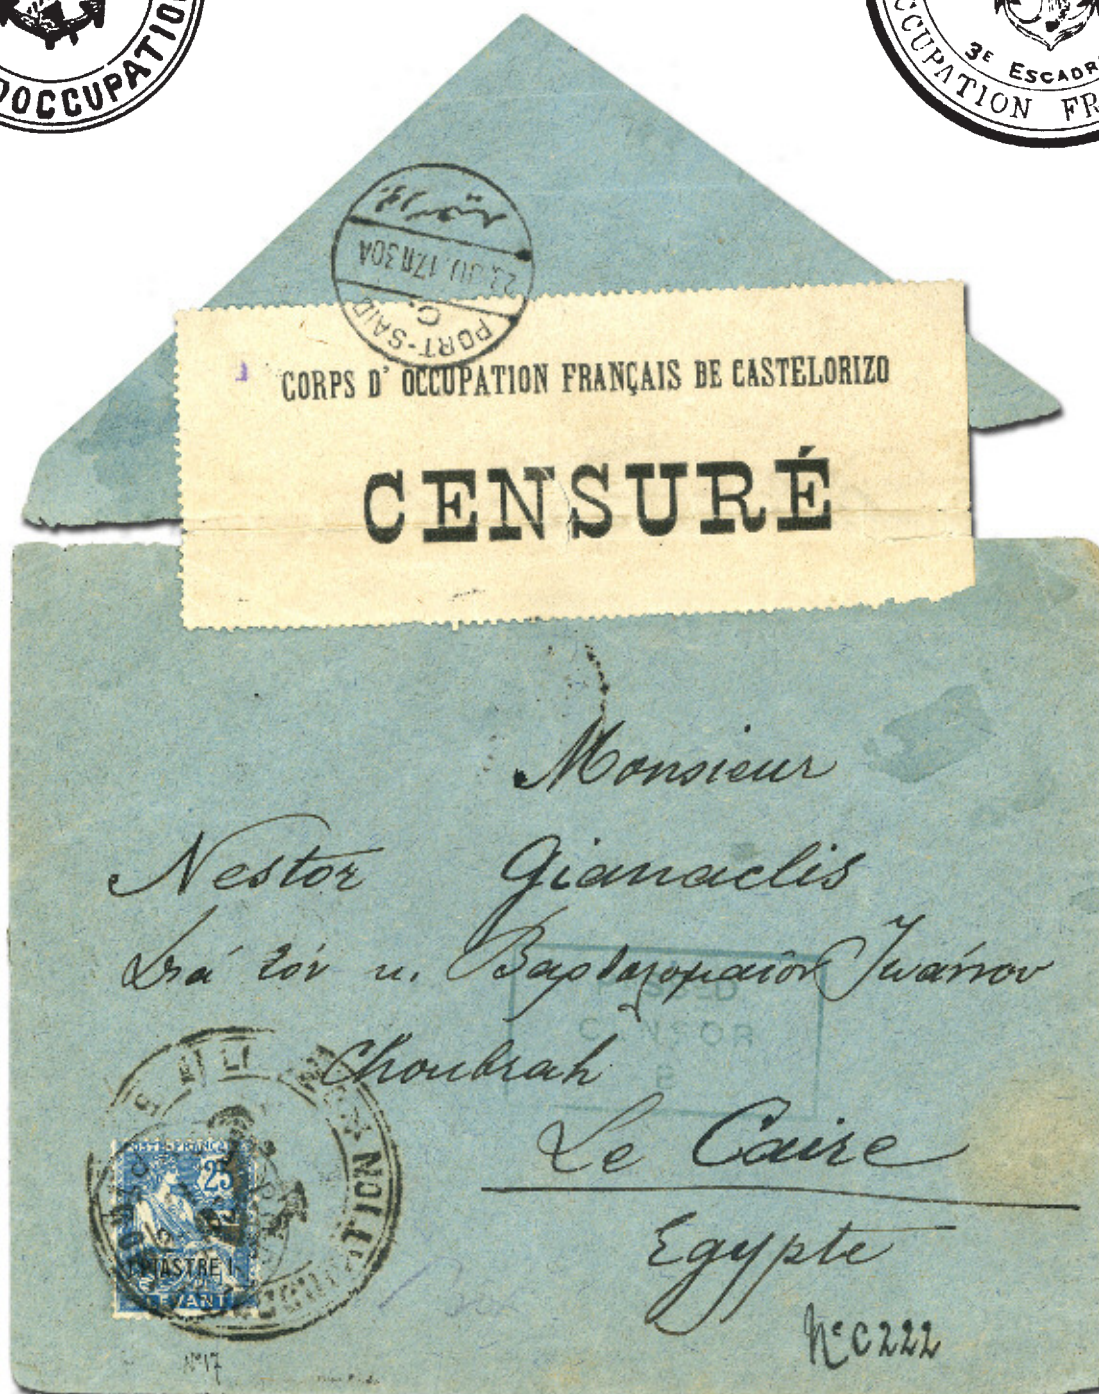 D'OCCUPATIO
3E ESCADR
CCUPATION FR
PORT-SAID
23. JU. 17 11 30A
CORPS D' OCCUPATION FRANÇAIS DE CASTELORIZO
CENSURÉ
Monsieur
Nestor Gianaclis
Διά τόν κ. Βαρθολομαίον Ιωάννου
Choubrah
Le Caire
Egypte
25
1 PIASTRE 1
LEVANT
OCCUPATION
No C222
No 17